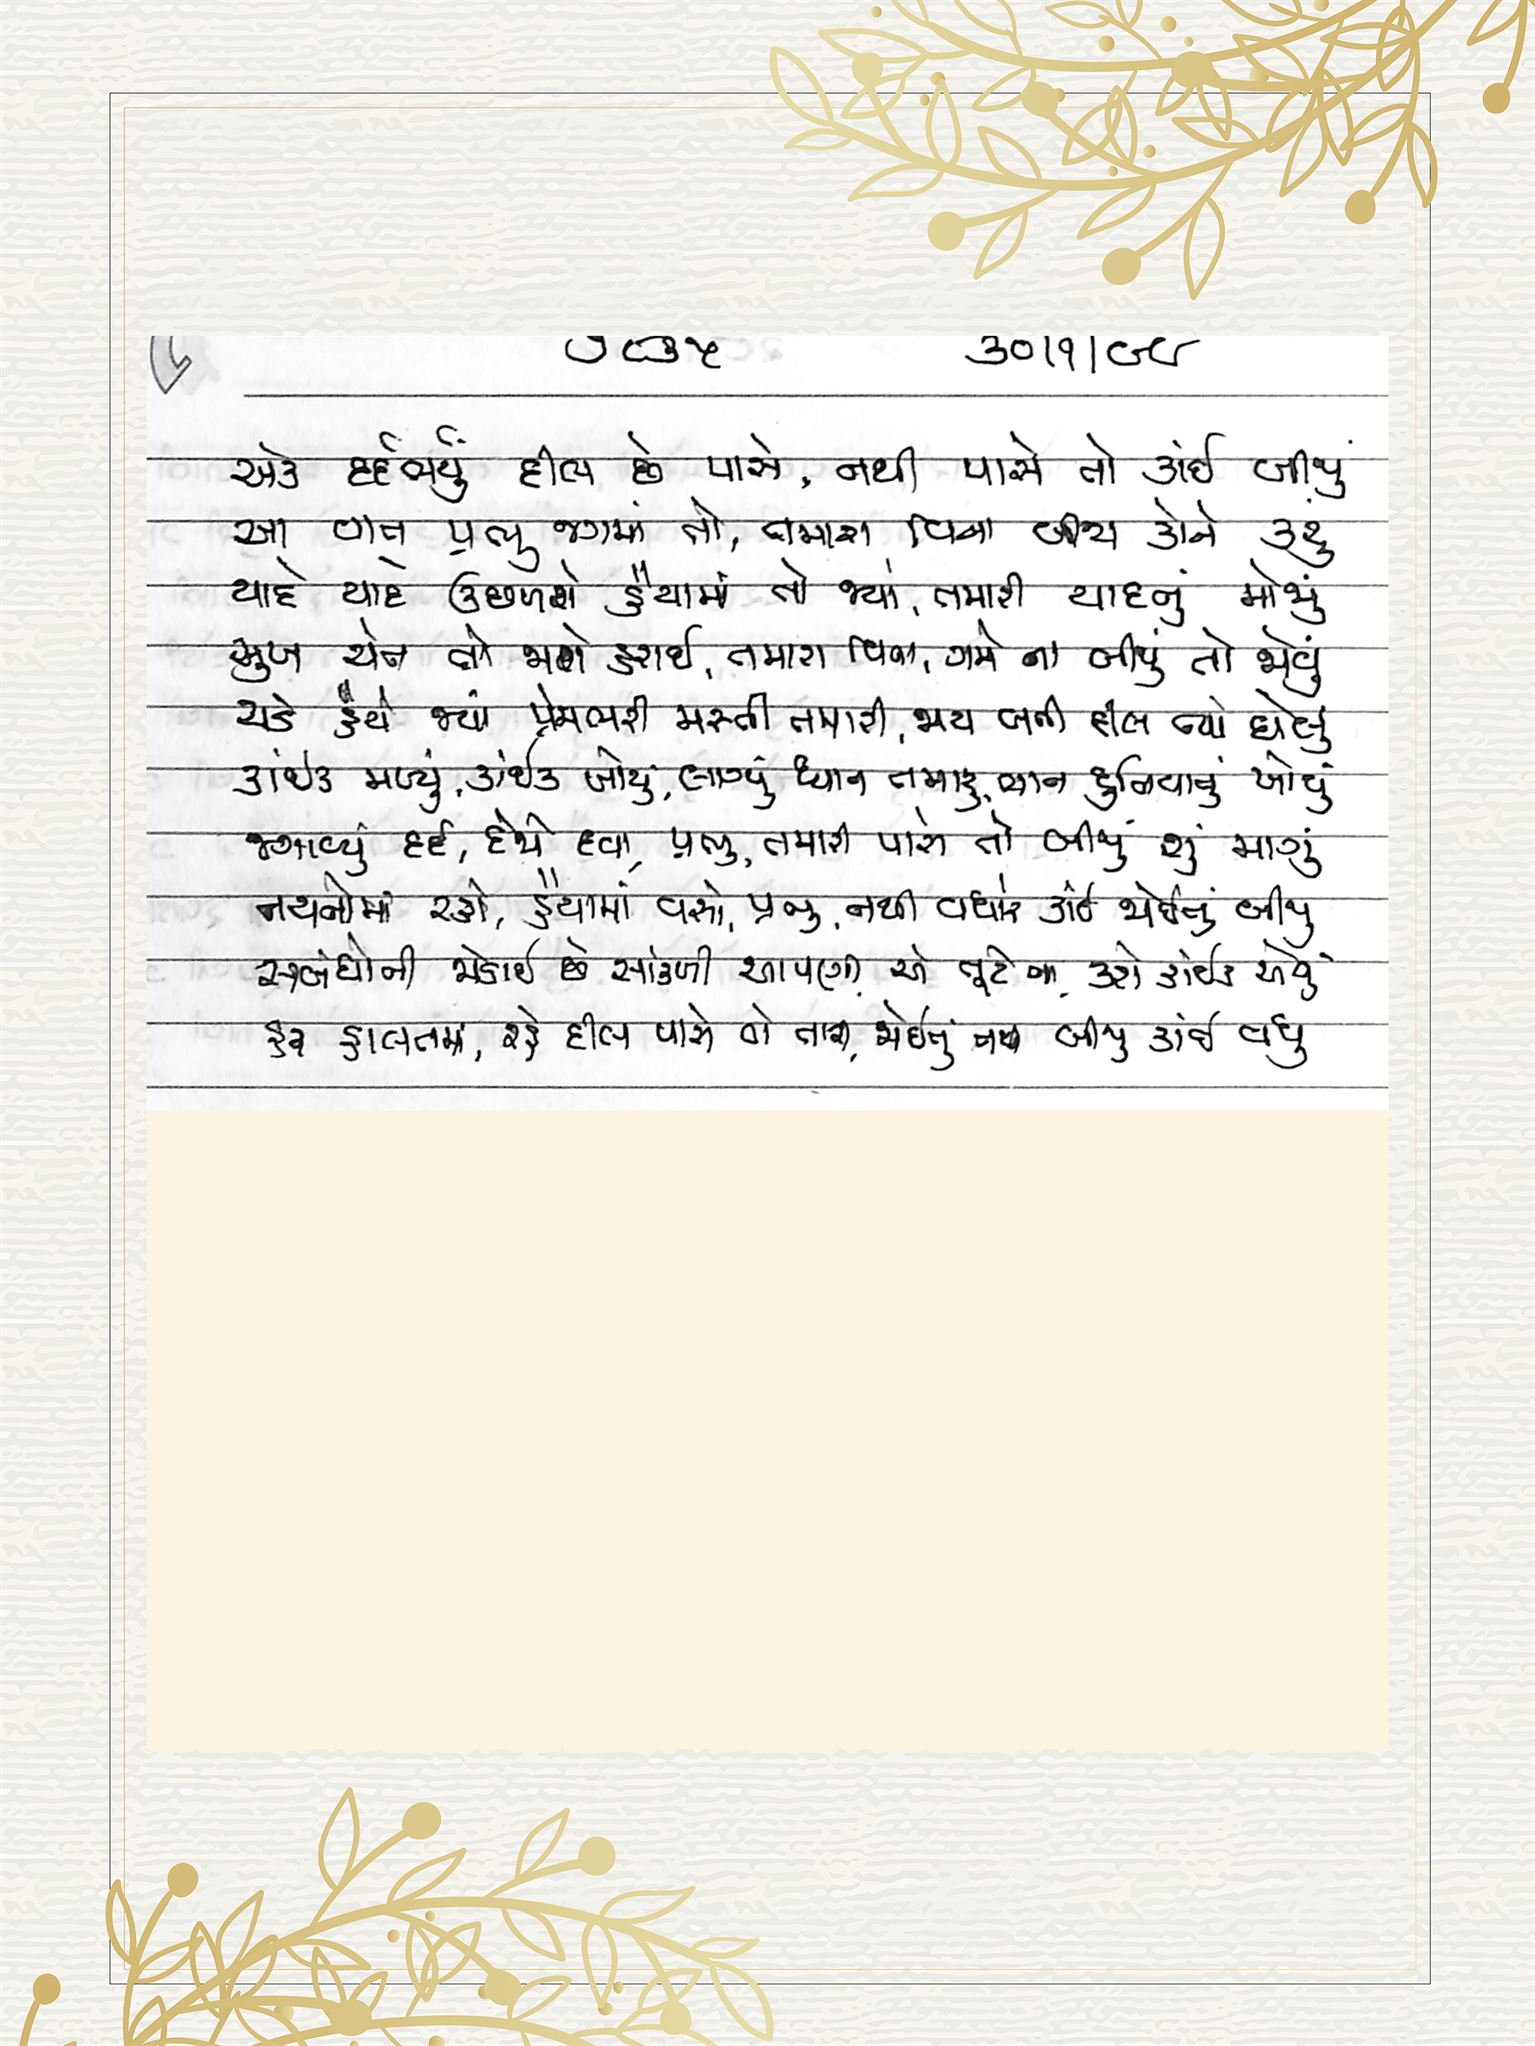 ૭૮૩૫ ૩૦/૧/૯૮
એક દર્દભર્યું દીલ છે પાસે, નથી પાસે તો કાંઈ બીજું
આ વાત પ્રભુ જગમાં તો, તમારા વિના બીજા કોને કહું
યાદે યાદે ઉછળશે હૈયામાં તો જ્યાં, તમારી યાદનું મોજું
મુજ ચેન તો જાશે હરાઈ, તમારા વિના, ગમે ના બીજું તો જોવું
ચડે હૈયે જ્યાં પ્રેમભરી મસ્તી તમારી, જાય બની દીલ ત્યાં ઘેલું
કાંઈક મળ્યું, કાંઈક ખોયું, લાગ્યું ધ્યાન તમારું, ભાન દુનિયાનું ખોયું
જગાવ્યું દર્દ, દેજે દવા, પ્રભુ, તમારી પાસે તો બીજું શું માગું
નયનોમાં રહો, હૈયામાં વસો, પ્રભુ, નથી વધારે કાંઈ જોઈતું બીજું
સબંધોની જોડાઈ છે સાંકળી આપણી, એ તૂટે ના, કરો કાંઈક એવું
હર હાલતમાં, રહે દીલ પાસે તો તારા, જોઈતું નથી બીજું કાંઈ વધુ